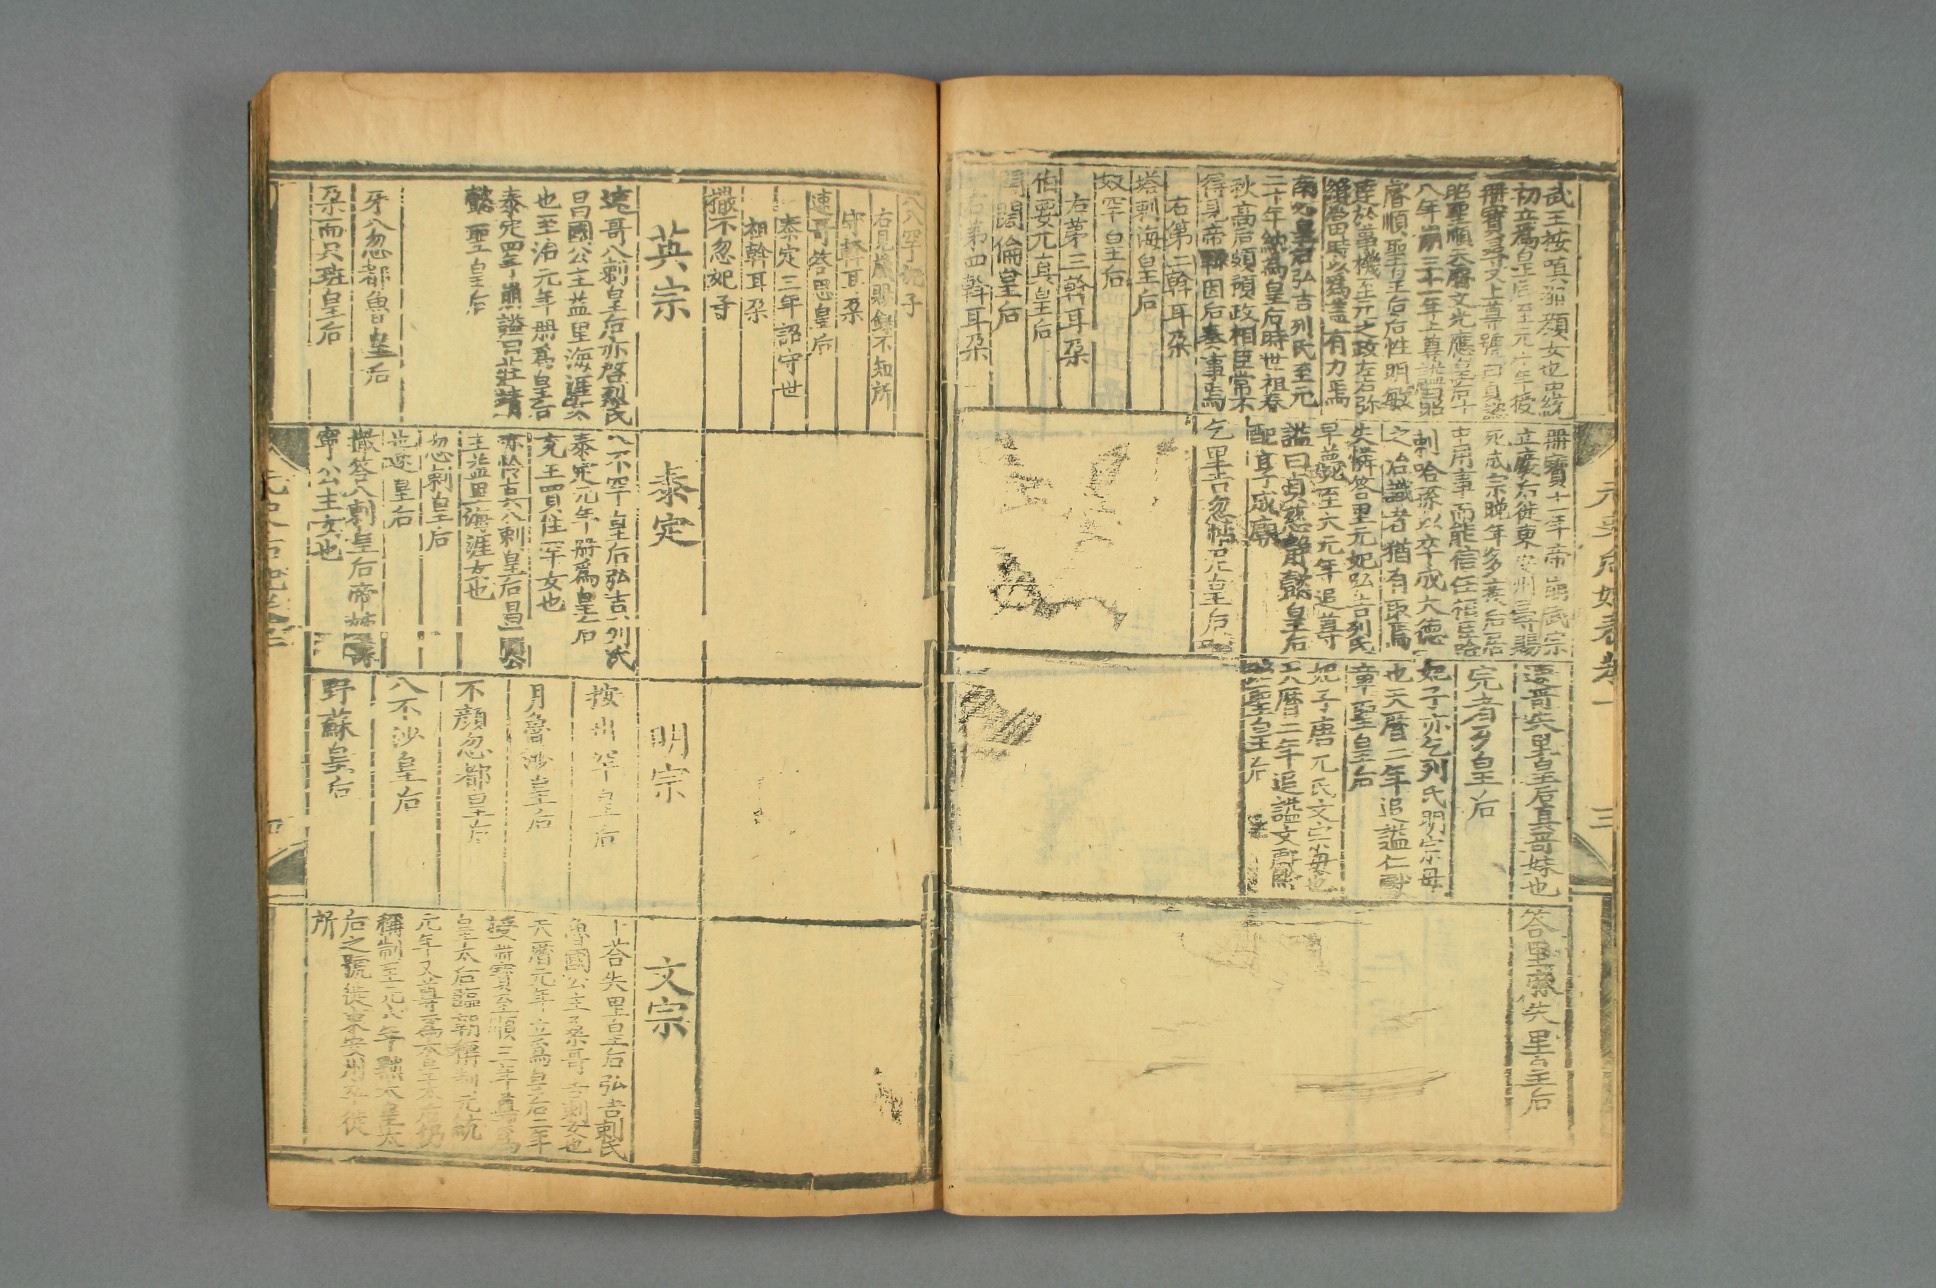 武王按嗔那顏女也中統
初立爲皇后至元十年授
冊寶 又上尊號曰貞懿
昭聖順天睿文光應皇后十
八年崩三十一年上尊謚曰昭
睿順聖皇后后性明敏
達於事機至元之政左右弥
縫當時以爲盖有力焉
南必皇后弘吉列氏至元
二十年納爲皇后時世祖春
秋高后頗預政相臣常不
得見帝輒因后奏事焉
右第二斡耳朶
塔剌海皇后
奴罕皇后
右第三斡耳朶
伯要兀真皇后
闊闊倫皇后
右第四斡耳朶
冊寶十一年帝崩武宗
立廢后徙東安州 賜
死成宗晚年多疾后居
中用事而能信任相臣
剌哈孫以卒成大德
之治識者猶有取焉
失憐答里元妃弘吉列氏
早薨至大元年追尊
謚曰貞慈靜懿皇后
配享成廟
乞里吉忽帖尼皇后
速哥失里皇后真哥妹也
完者歹皇后
妃子亦乞列氏明宗母
也天曆二年追謚仁獻
章聖皇后
妃子唐兀氏文宗母也
天曆二年追謚文獻昭
聖皇后
答里 失里皇后
元史后妃表卷一
三
八八罕妃子
右見歲賜錄不知所
守斡耳朶
速哥答思皇后
泰定三年詔守世
祖斡耳朶
撒不忽妃子
英宗
速哥八剌皇后亦啓烈氏
昌國公主益里海涯女
也至治元年冊爲皇后
泰定四年崩謚曰莊靜
懿聖皇后
牙八忽都魯皇后
朶而只班皇后
泰定
八不罕皇后弘吉列氏
泰定元年冊爲皇后
兗王買住罕女也
亦怜吉八剌皇后昌國公
主益里海涯女也
忽剌皇后
也速皇后
撒答八剌皇后帝姊壽
寧公主女也
明宗
按出罕皇后
月魯沙皇后
不顏忽都皇后
八不沙皇后
野蘇皇后
文宗
卜荅失里皇后弘吉剌氏
魯國公主桑哥吉剌女也
天曆元年立爲皇后二年
授冊寶至順三年尊爲
皇太后臨朝稱制元統
元年又尊爲太皇太后仍
稱制至元六年 太皇太
后之號徙東安州 徙
所